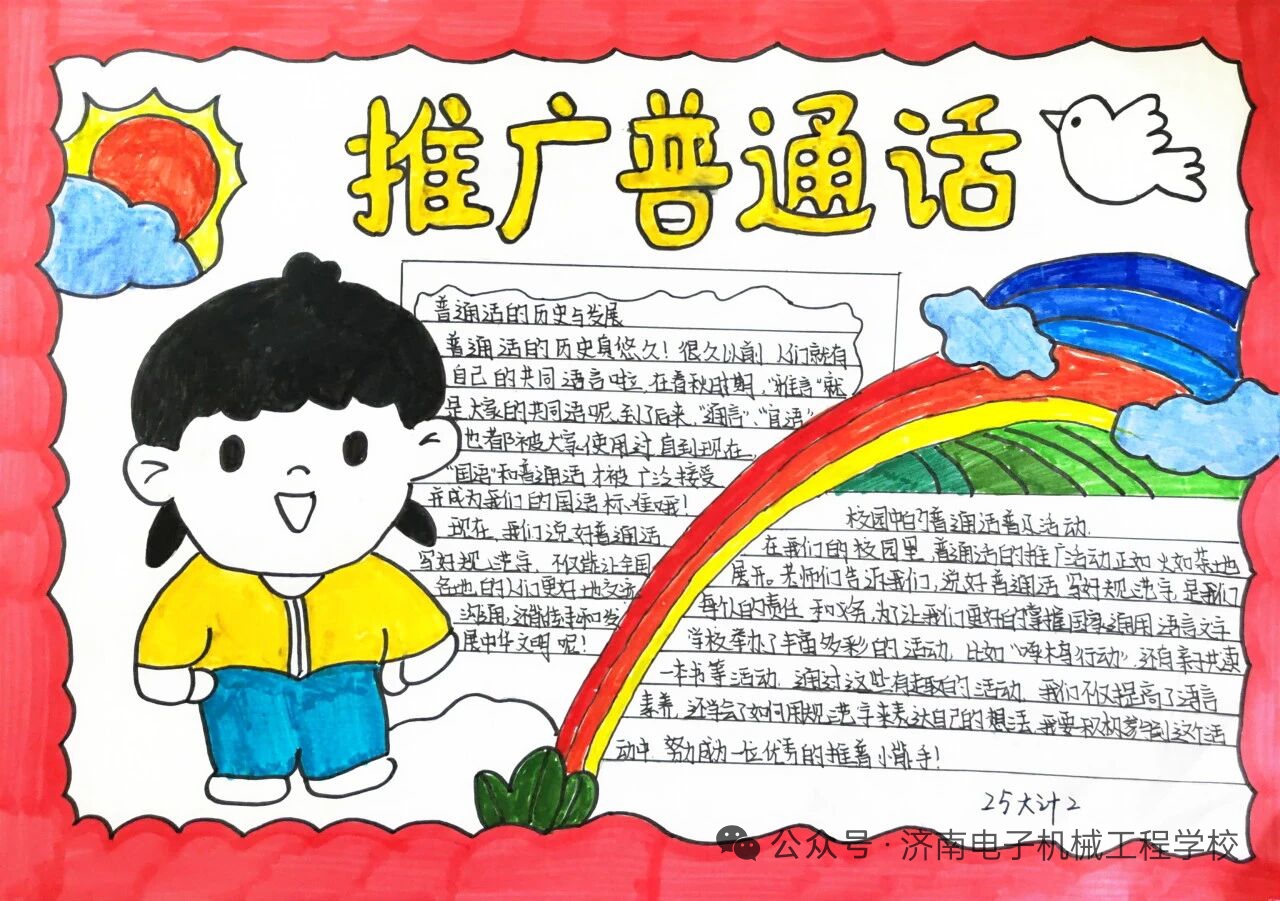 推广普通话
普通话的历史与发展
普通话的历史真悠久！很久以前，人们就有
自己的共同语言啦，在春秋时期，“雅言”就
是大家的共同语呢，到了后来，“通言”、“官话”
也都被大家使用过，直到现在，
“国语”和普通话才被广泛接受
并成为我们的国语标准哦！
现在，我们说好普通话
写好规范字，不仅能让全国
各地的人们更好地交流
运用，还能传承和发
展中华文明呢！
校园中的普通话普及活动
在我们的校园里，普通话的推广活动正如火如荼地
展开。老师们告诉我们，说好普通话，写好规范字，是我们
每个人的责任和义务，为了让我们更好的掌握国家通用语言文字
学校举办了丰富多彩的活动，比如“啄木鸟行动”，还有亲子共读
一本书等活动，通过这些有趣的活动，我们不仅提高了语言
素养，还学会了如何用规范字来表达自己的想法，我要积极参与到这个活
动中，努力成为一位优秀的推普小能手！
25大计2
公众号·济南电子机械工程学校